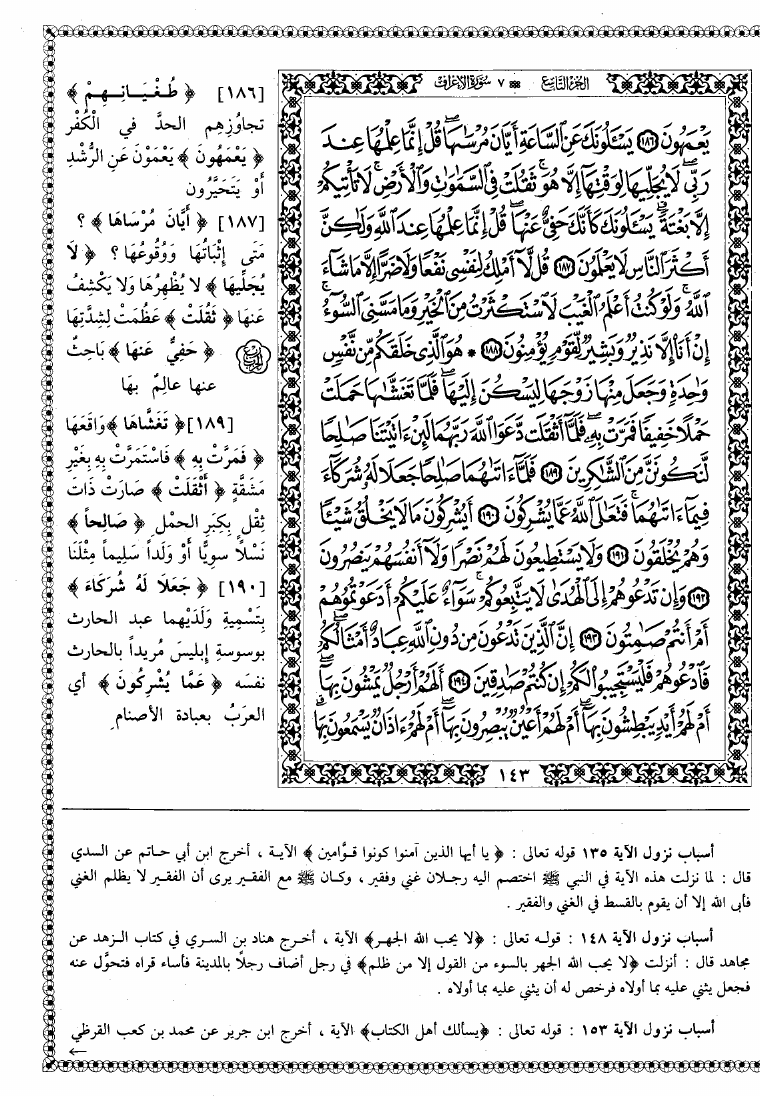 الجزء التاسع ٧ سورة الأعراف
يَعْمَهُونَ ١٨٦ يَسْـَٔلُونَكَ عَنِ ٱلسَّاعَةِ أَيَّانَ مُرْسَىٰهَا قُلْ إِنَّمَا عِلْمُهَا عِندَ
رَبِّى لَا يُجَلِّيهَا لِوَقْتِهَآ إِلَّا هُوَ ثَقُلَتْ فِى ٱلسَّمَٰوَٰتِ وَٱلْأَرْضِ لَا تَأْتِيكُمْ
إِلَّا بَغْتَةً يَسْـَٔلُونَكَ كَأَنَّكَ حَفِىٌّ عَنْهَا قُلْ إِنَّمَا عِلْمُهَا عِندَ ٱللَّهِ وَلَٰكِنَّ
أَكْثَرَ ٱلنَّاسِ لَا يَعْلَمُونَ ١٨٧ قُل لَّآ أَمْلِكُ لِنَفْسِى نَفْعًا وَلَا ضَرًّا إِلَّا مَا شَآءَ
ٱللَّهُ وَلَوْ كُنتُ أَعْلَمُ ٱلْغَيْبَ لَٱسْتَكْثَرْتُ مِنَ ٱلْخَيْرِ وَمَا مَسَّنِىَ ٱلسُّوٓءُ
إِنْ أَنَا۠ إِلَّا نَذِيرٌ وَبَشِيرٌ لِّقَوْمٍ يُؤْمِنُونَ ١٨٨ * هُوَ ٱلَّذِى خَلَقَكُم مِّن نَّفْسٍ
وَٰحِدَةٍ وَجَعَلَ مِنْهَا زَوْجَهَا لِيَسْكُنَ إِلَيْهَا فَلَمَّا تَغَشَّىٰهَا حَمَلَتْ
حَمْلًا خَفِيفًا فَمَرَّتْ بِهِۦ فَلَمَّآ أَثْقَلَت دَّعَوَا ٱللَّهَ رَبَّهُمَا لَئِنْ ءَاتَيْتَنَا صَٰلِحًا
لَّنَكُونَنَّ مِنَ ٱلشَّٰكِرِينَ ١٨٩ فَلَمَّآ ءَاتَىٰهُمَا صَٰلِحًا جَعَلَا لَهُۥ شُرَكَآءَ
فِيمَآ ءَاتَىٰهُمَا فَتَعَٰلَى ٱللَّهُ عَمَّا يُشْرِكُونَ ١٩٠ أَيُشْرِكُونَ مَا لَا يَخْلُقُ شَيْـًٔا
وَهُمْ يُخْلَقُونَ ١٩١ وَلَا يَسْتَطِيعُونَ لَهُمْ نَصْرًا وَلَآ أَنفُسَهُمْ يَنصُرُونَ
١٩٢ وَإِن تَدْعُوهُمْ إِلَى ٱلْهُدَىٰ لَا يَتَّبِعُوكُمْ سَوَآءٌ عَلَيْكُمْ أَدَعَوْتُمُوهُمْ
أَمْ أَنتُمْ صَٰمِتُونَ ١٩٣ إِنَّ ٱلَّذِينَ تَدْعُونَ مِن دُونِ ٱللَّهِ عِبَادٌ أَمْثَالُكُمْ
فَٱدْعُوهُمْ فَلْيَسْتَجِيبُوا۟ لَكُمْ إِن كُنتُمْ صَٰدِقِينَ ١٩٤ أَلَهُمْ أَرْجُلٌ يَمْشُونَ بِهَآ
أَمْ لَهُمْ أَيْدٍ يَبْطِشُونَ بِهَآ أَمْ لَهُمْ أَعْيُنٌ يُبْصِرُونَ بِهَآ أَمْ لَهُمْ ءَاذَانٌ يَسْمَعُونَ بِهَا
١٤٣
[١٨٦] ﴿ طُغْيَـانِـهِمْ ﴾
تجاوُزِهِم الحدَّ في الْكُفْر
﴿ يَعْمَهُونَ ﴾ يَعْمَوْنَ عَنِ الرُّشْدِ
أَوْ يَتَحَيَّرُون
[١٨٧] ﴿ أَيَّانَ مُرْسَاهَا ﴾ ؟
مَتَى إِثْبَاتُهَا وَوُقُوعُهَا ؟ ﴿ لاَ
يُجَلِّيهَا ﴾ لا يُظْهِرُهَا وَلا يَكْشِفُ
عَنهَا ﴿ ثَقُلَتْ ﴾ عَظُمَتْ لِشِدَّتِهَا
﴿ حَفِيٌّ عَنهَا ﴾ بَاحِثٌ
عنها عالِمٌ بهَا
[١٨٩] ﴿ تَغَشَّاهَا ﴾ وَاقَعَهَا
﴿ فَمَرَّتْ بِهِ ﴾ فَاسْتَمَرَّتْ بِهِ بِغَيْرِ
مَشَقَّةٍ ﴿ أَثْقَلَتْ ﴾ صَارَتْ ذَاتَ
ثِقْلٍ بِكِبَرِ الحمْلِ ﴿ صَالِحاً ﴾
نَسْلاً سويًّا أَوْ وَلَداً سَلِيماً مِثْلَنَا
[١٩٠] ﴿ جَعَلاَ لَهُ شُرَكَاءَ ﴾
بِتَسْمِيَةِ وَلَدَيْهِما عبد الحارث
بوسوسةِ إبليسَ مُريداً بالحارث
نفسَه ﴿ عَمَّا يُشْرِكُونَ ﴾ أي
العرَبُ بعبادة الأصنام
أسباب نزول الآية ١٣٥ قوله تعالى : ﴿ يا أيها الذين آمنوا كونوا قوَّامين ﴾ الآيـة ، أخرج ابن أبي حـاتم عن السدي
قال : لما نزلت هذه الآية في النبي ﷺ اختصم اليه رجـلان غني وفقير ، وكـان ﷺ مع الفقـير يرى أن الفقـير لا يظلم الغني
فأبى الله إلا أن يقوم بالقسط في الغني والفقير .
أسباب نزول الآية ١٤٨ : قولـه تعالى : ﴿لا يحب الله الجهـر﴾ الآية ، أخـرج هناد بن السـري في كتاب الـزهد عن
مجاهد قال : أنزلت ﴿لا يحب الله الجهر بالسوء من القول إلا من ظلم﴾ في رجل أضاف رجلاً بالمدينة فأساء قراه فتحوَّل عنه
فجعل يثني عليه بما أولاه فرخص له أن يثني عليه بما أولاه .
أسباب نزول الآية ١٥٣ : قوله تعالى : ﴿يسألك أهل الكتاب﴾ الآية ، أخرج ابن جرير عن محمد بن كعب القرظي
←